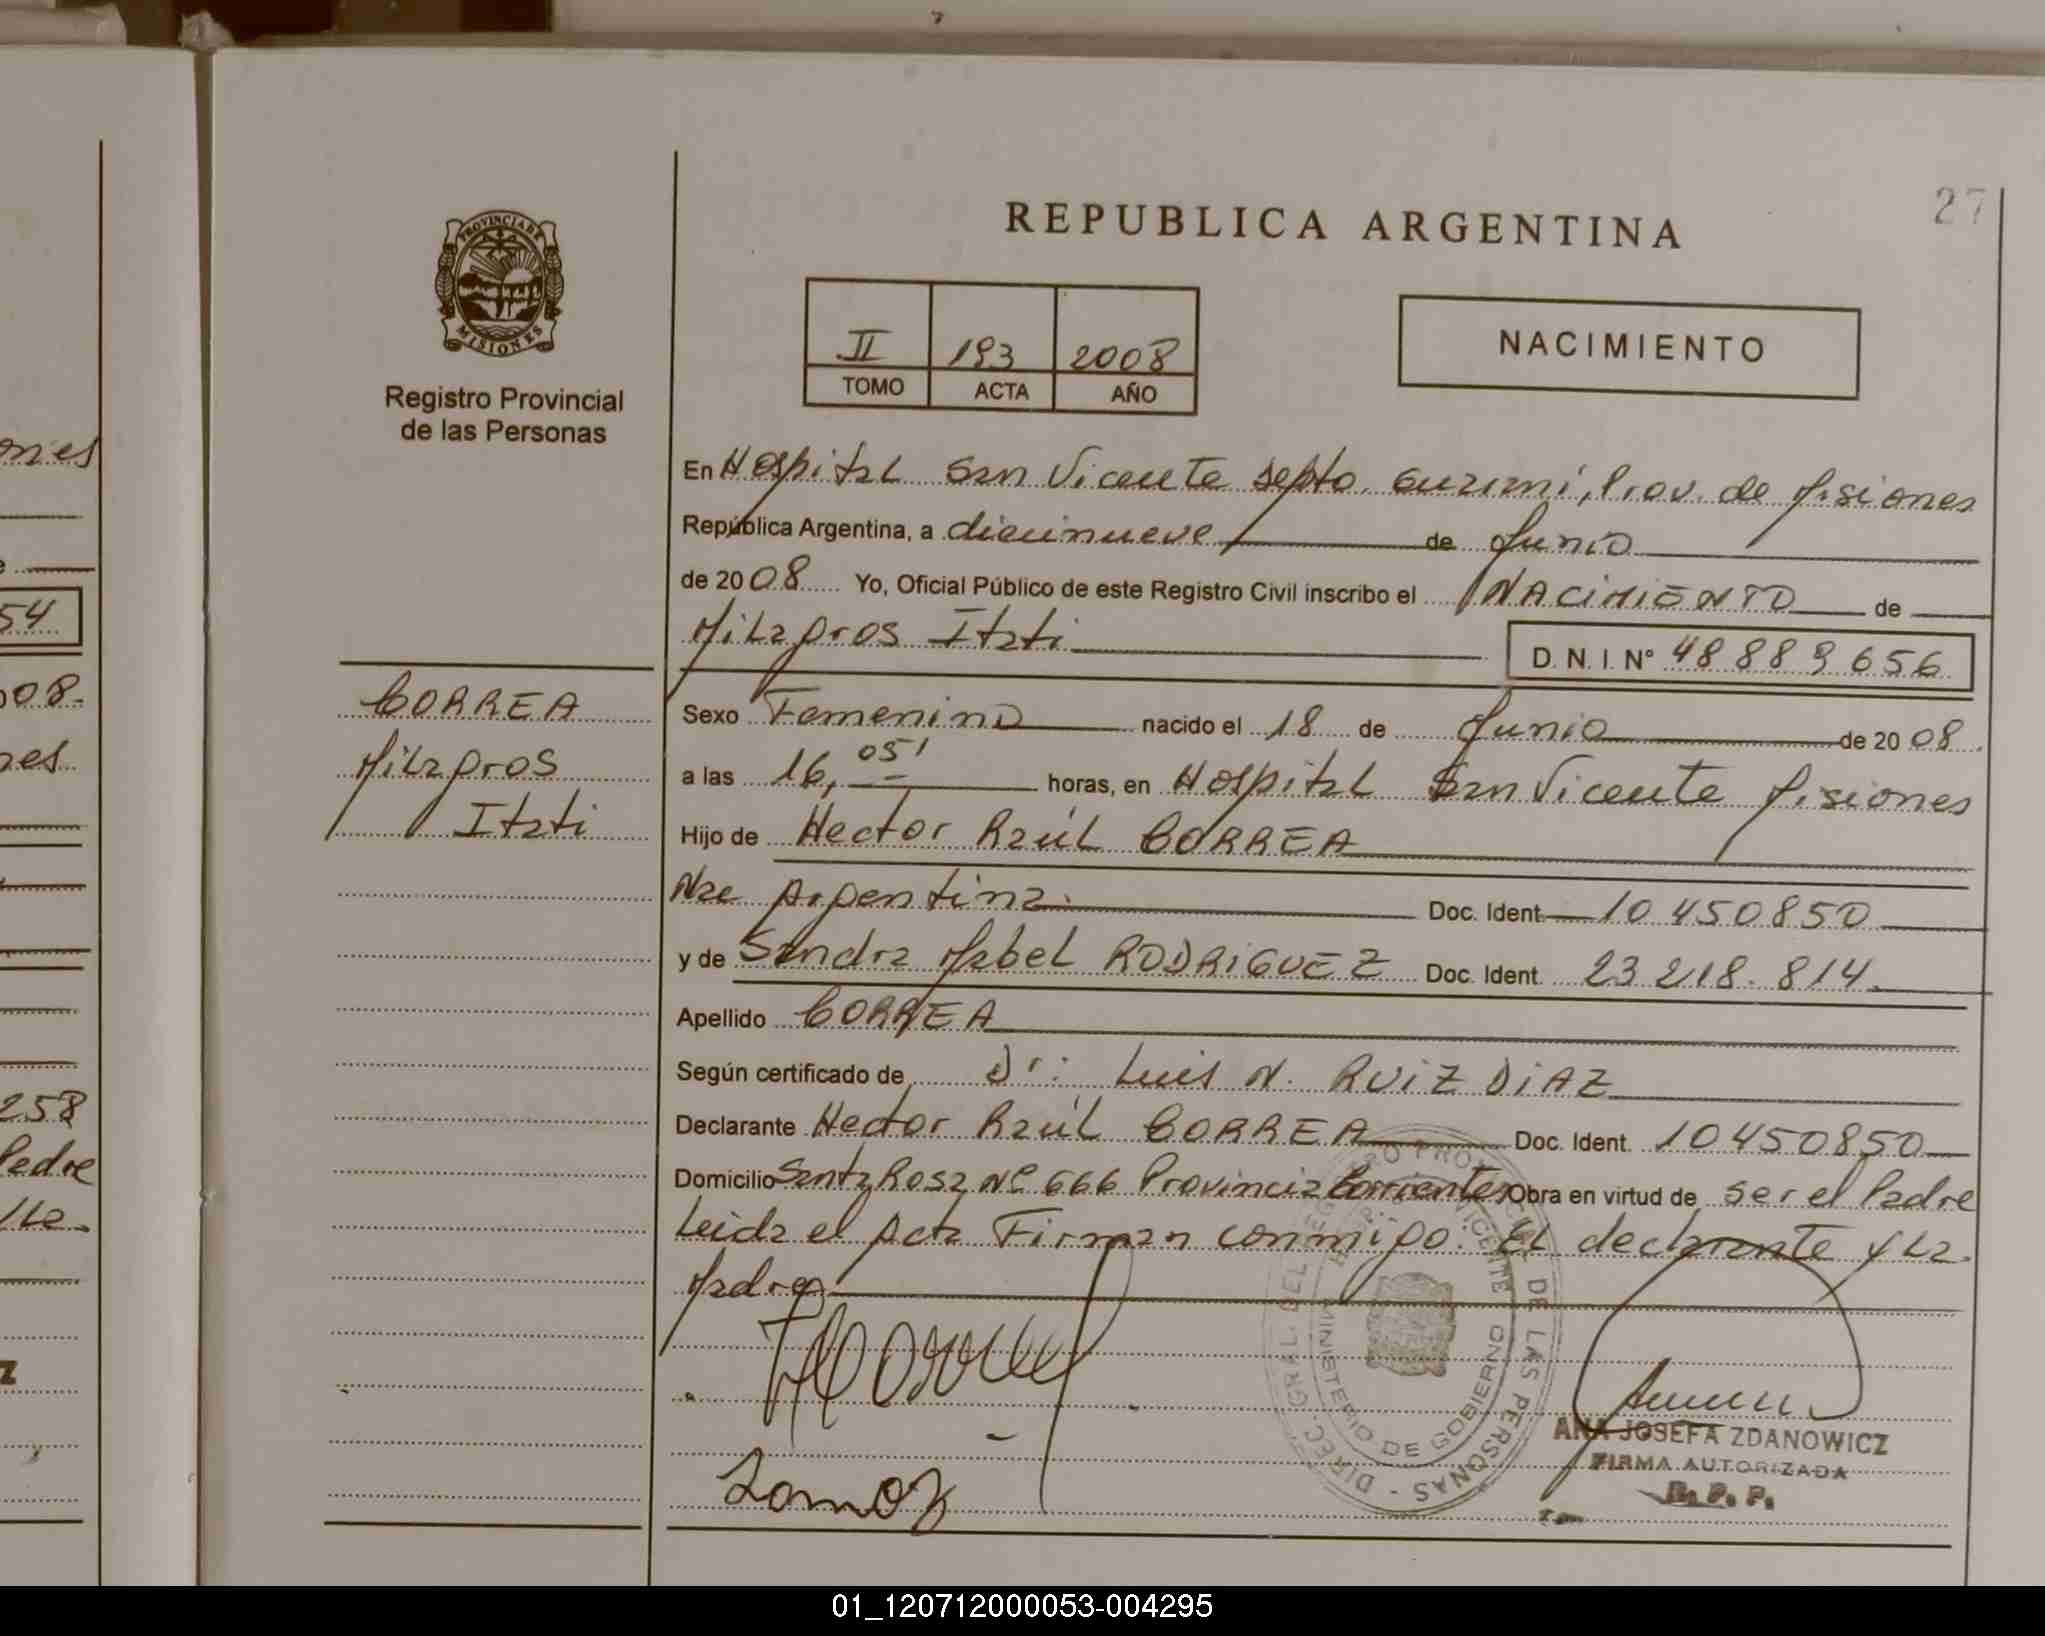 27
REPUBLICA ARGENTINA
PROVINCIA DE
MISIONES
Registro Provincial
de las Personas
II 193 2008
TOMO ACTA AÑO
NACIMIENTO
En Hospital San Vicente Depto. Guarani, Prov. de Misiones
República Argentina, a diecinueve de Junio
de 2008 Yo, Oficial Público de este Registro Civil inscribo el NACIMIENTO de
Milagros Itati D. N. I. N° 48889656
CORREA
Milagros
Itati
Sexo Femenino nacido el 18 de Junio de 2008.
a las 16, 05' horas, en Hospital San Vicente Misiones
Hijo de Hector Raúl CORREA
Nac Argentina. Doc. Ident. 10450850
y de Sandra Mabel RODRIGUEZ Doc. Ident. 23218.814.
Apellido CORREA
Según certificado de Dr: Luis N. RUIZ DIAZ
Declarante Hector Raúl CORREA Doc. Ident. 10450850
Domicilio Santa Rosa Nº 666 Provincia Corrientes Obra en virtud de ser el Padre
Leida el Acta Firman conmigo. El declarante y La.
Madre
DIREC. GRAL. DEL REGISTRO PROVINCIAL DE LAS PERSONAS -
MINISTERIO DE GOBIERNO
ANA JOSEFA ZDANOWICZ
FIRMA AUTORIZADA
R. P. P.
ones
54
008.
nes
258
Padre
La.
Z
01_120712000053-004295